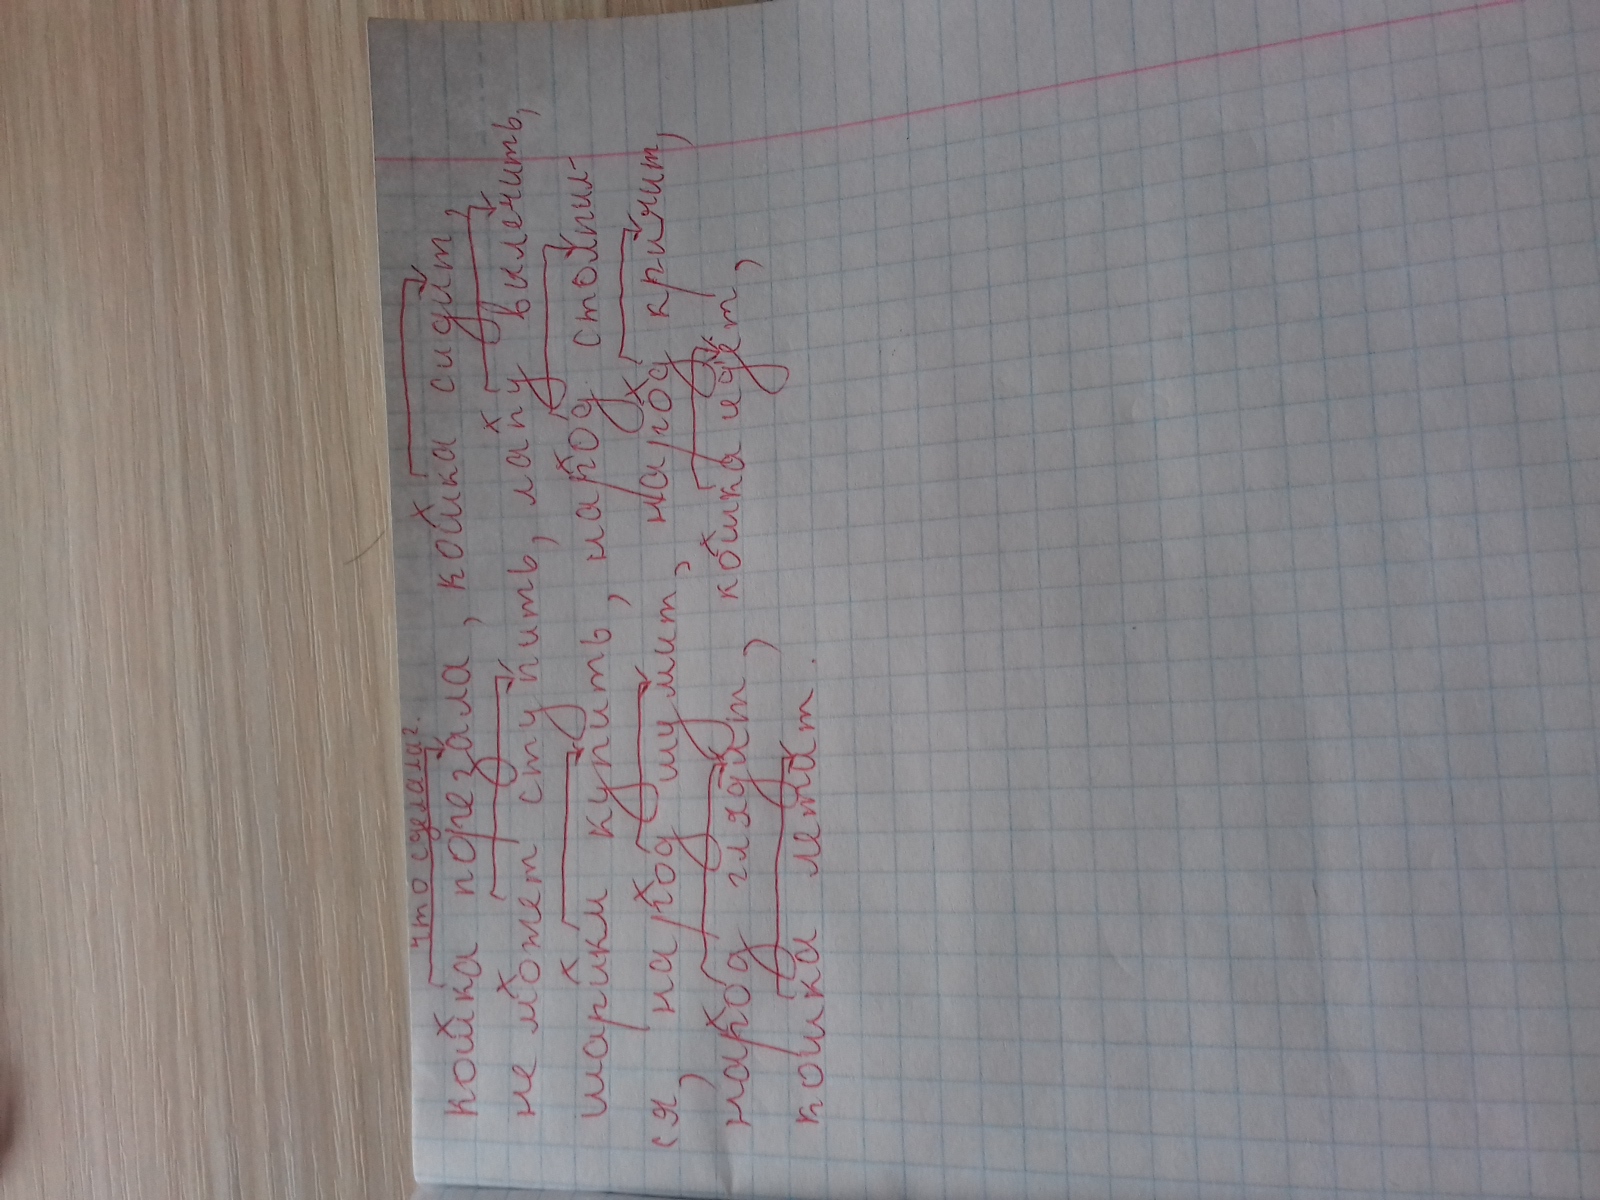 что сделала?
кошка порезала, кошка сидит,
не может ступить, лапу вылечить,
шарики купить, народ столпил-
ся, народ шумит, народ кричит,
народ глядит, кошка идет,
кошка летит.